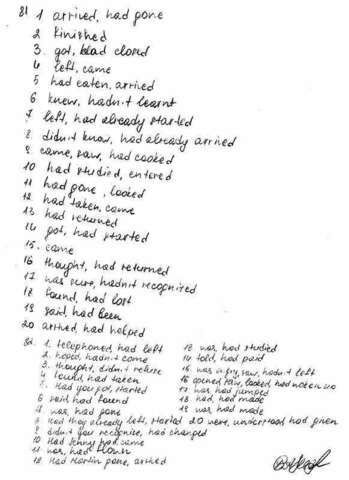 81 1 arrived, had gone
2 finished
3. got, had closed
4 left, came
5 had eaten, arrived
6 knew, hadn't learnt
7 left, had already started
8. didn't know, had already arrived
9 came, saw, had cooked
10 had studied, entered
11 had gone, looked
12 had taken, came
13 had returned
14 got, had started
15. came
16 thought, had returned
17 was sure, hadn't recognized
18 found, had lost
19 said, had been
20 arrived, had helped
82. 1. telephoned, had left
2. hoped, hadn't come
3. thought, didn't
4 found, had taken
5. Had you got, started
6 said, had found
7 was, had gone
8 Had they already left, started 20 were, understood, had given
9 didn't you recognize, had changed
10 Had Jenny had, came
11 was, had flown
12 Had Martin gone, arrived
13 was, had studied
14 told, had paid
15 was, saw, hadn't left
16 opened, saw, looked, had
17 was, had jumped
18 had, had made
19 was, had made